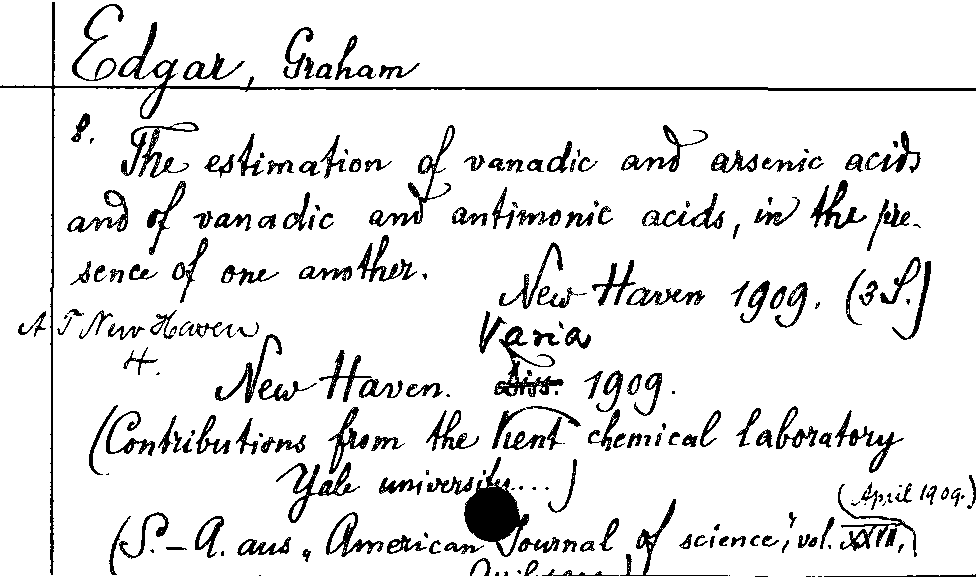 Edgar, Graham
8.
The estimation of vanadic and arsenic acids
and of vanadic and antimonic acids, in the pre-
sence of one another.
New Haven 1909. (3 S.)
A T New Haven
4.
Varia
New Haven. Diss. 1909.
(Contributions from the Kent chemical laboratory
Yale university...)
(April 1909.)
(S.-A. aus „American Journal of science", vol. XXVII,
April 1909)